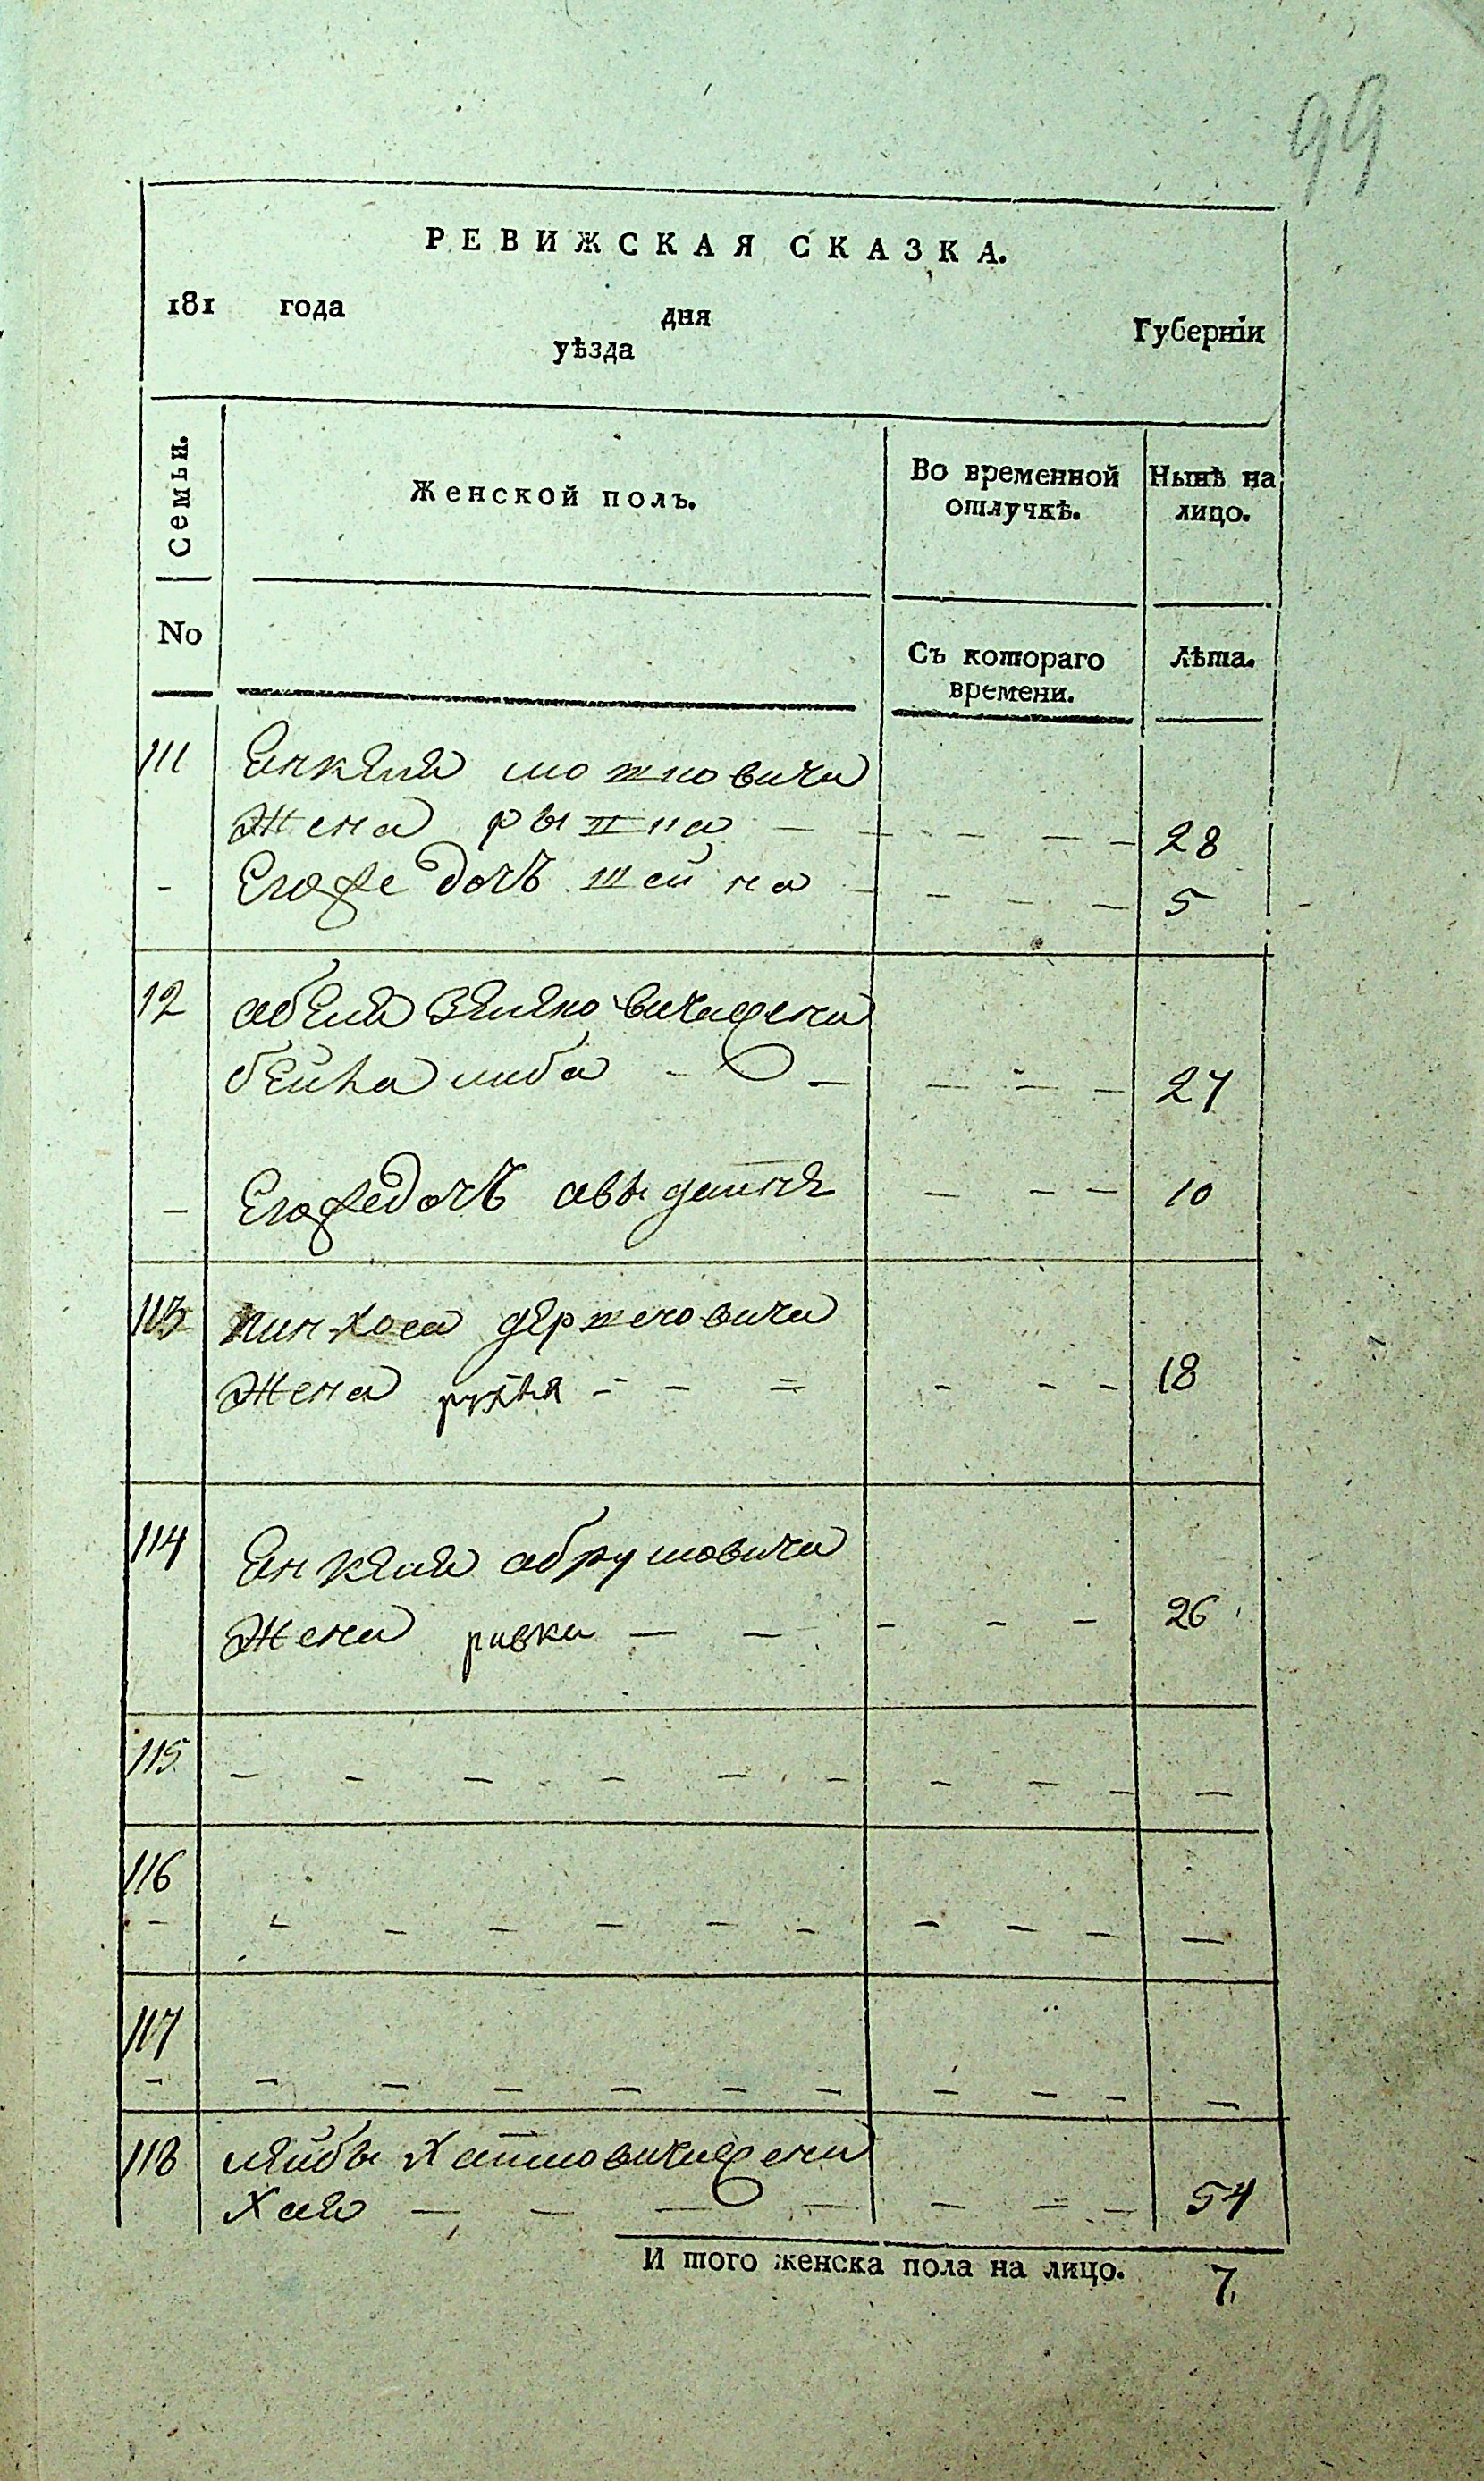 99
РЕВИЖСКАЯ СКАЗКА.
181 года дня Губерніи
уѣзда
Семьи.
Женской полъ.
Во временной отлучкѣ.
Нынѣ на лицо.
No
Съ котораго времени.
Лѣта.
111 Енкеля
жена — — — — — 28
- Егоже дочь шейна — — — — 5
12 абеля жена
бейла либа - — — — — 27
— Егоже дочь — — — 10
113 пинхоса
жена - - = - - - 18
114 Енкеля абрумовича
жена ривка — — - - - 26
115 — - — - — - - — - —
116
- - - - - - - - - - —
117
- - - - - - - - - - —
118 лейбы жена
Хая — — — — — = — 54
И того женска пола на лицо. 7.